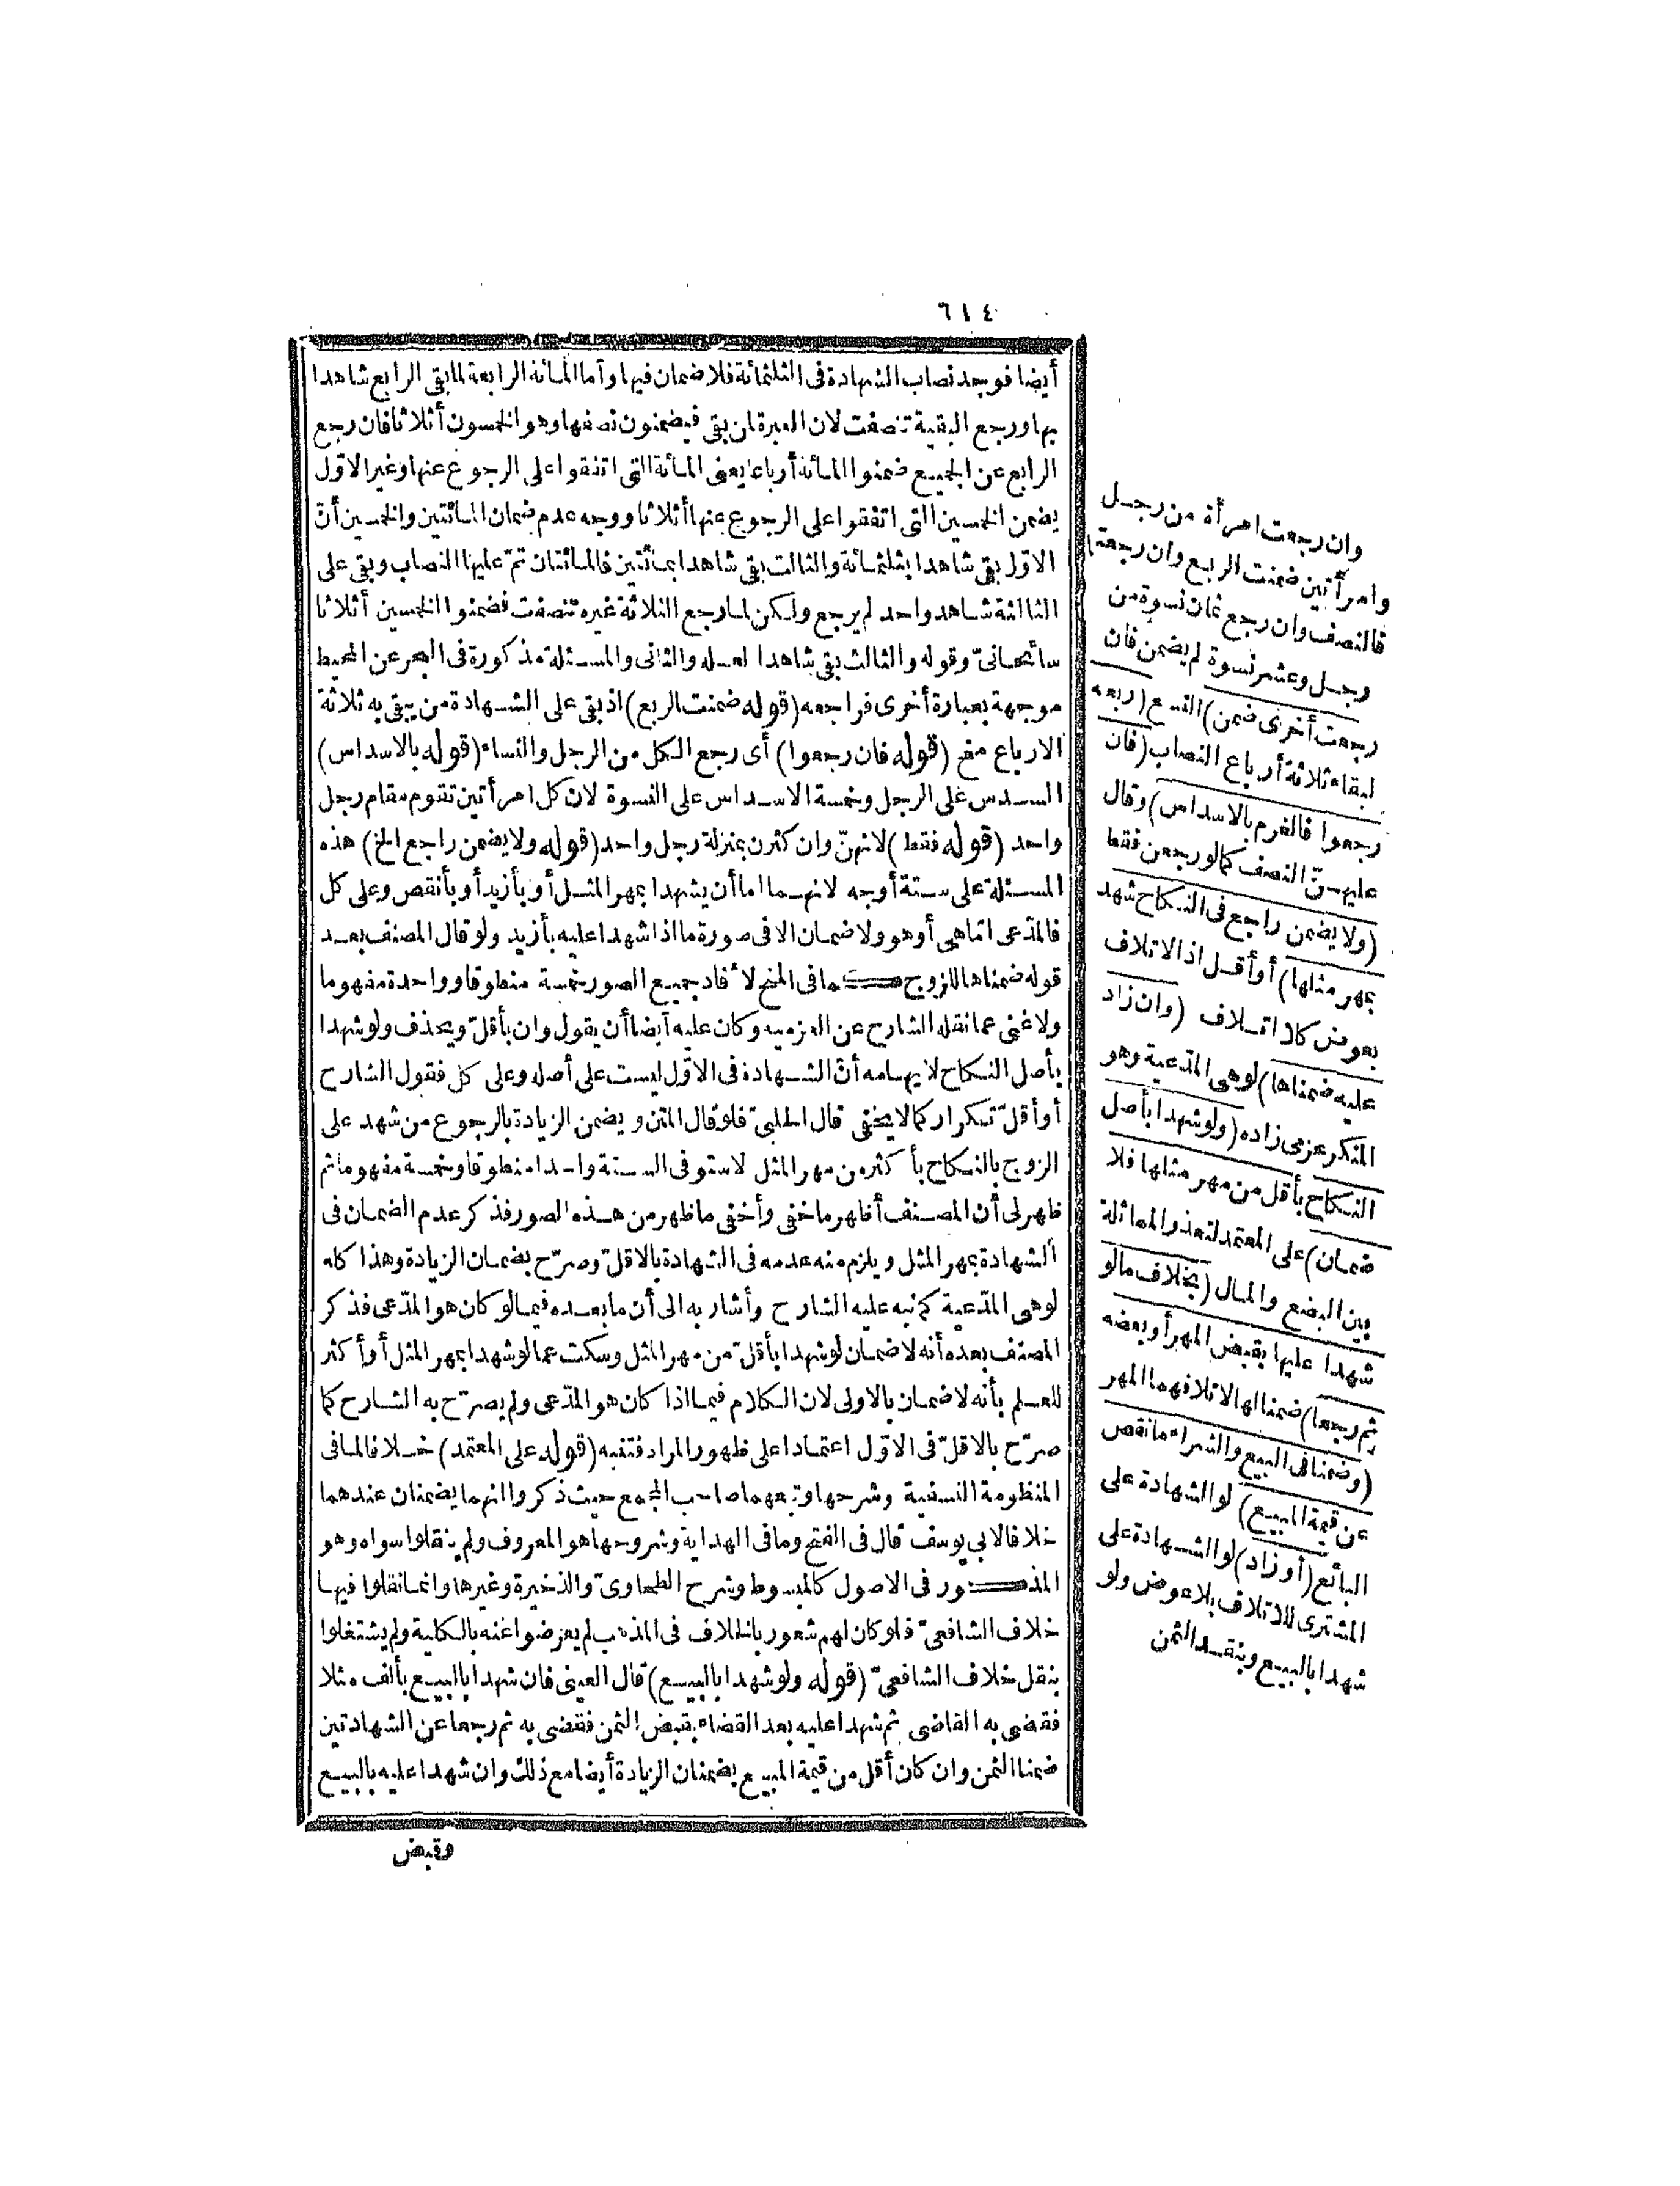 ٦١٤
أيضا فوجد نصاب الشهادة فى الثلثمائة فلا ضمان فيها وأما المائة الرابعة لما بقى الرابع شاهدا
بها ورجع البقية تنصفت لان العبرة لمن بقى فيضمنون نصفها وهو الخمسون أثلاثا فان رجع
الرابع عن الجميع ضمنوا المائة أرباعا يعنى المائة التى اتفقوا على الرجوع عنها وغير الاوّل
يضمن الخمسين التى اتفقوا على الرجوع عنها أثلاثا ووجه عدم ضمان المائتين والخمسين أنّ
الاوّل بقى شاهدا بثلثمائة والثالث بقى شاهدا بمائتين فالمائتان تمّ عليها النصاب وبقى على
الثالثة شاهد واحد لم يرجع ولكن لما رجع الثلاثة غيره تنصفت فضمنوا الخمسين أثلاثا
سائحانىّ وقوله والثالث بقى شاهدا لعله والثانى والمسئلة مذكورة فى البحر عن المحيط
موجهة بعبارة أخرى فراجعه (قوله ضمنت الربع) اذ بقى على الشهادة من يبقى به ثلاثة
الارباع منح (قوله فان رجعوا) أى رجع الكل من الرجل والنساء (قوله بالاسداس)
السدس على الرجل وخمسة الاسداس على النسوة لان كل امرأتين تقوم مقام رجل
واحد (قوله فقط) لانهنّ وان كثرن بمنزلة رجل واحد (قوله ولا يضمن راجع الخ) هذه
المسئلة على ستة أوجه لانهما اما أن يشهدا بمهر المثل أو بأزيد أو بأنقص وعلى كل
فالمدّعى امّا هى أو هو ولا ضمان الا فى صورة ما اذا شهدا عليه بأزيد ولو قال المصنف بعد
قوله ضمناها للزوج كما فى المنح لافاد جميع الصور خمسة منطوقا وواحدة مفهوما
ولاغنى عما نقله الشارح عن العزميه وكان عليه أيضا أن يقول وان بأقلّ ويحذف ولو شهدا
بأصل النكاح لايهامه أنّ الشهادة فى الاوّل ليست على أصله وعلى كل فقول الشارح
أو أقلّ تكرار كما لا يخفى قال الحلبىّ فلو قال المتن ويضمن الزيادة بالرجوع من شهد على
الزوج بالنكاح بأكثر من مهر المثل لاستوفى الستة واحدا منطوقا وخمسة مفهوما ثم
ظهر لى أن المصنف أظهر ما خفى وأخفى ما ظهر من هذه الصور فذكر عدم الضمان فى
الشهادة بمهر المثل ويلزم منه عدمه فى الشهادة بالاقلّ وصرّح بضمان الزيادة وهذا كله
لو هى المدّعية كما نبه عليه الشارح وأشار به الى أن ما بعده فيما لو كان هو المدّعى فذكر
المصنف بعده أنه لا ضمان لو شهدا بأقلّ من مهر المثل وسكت عما لو شهدا بمهر المثل أو أكثر
للعلم بأنه لا ضمان بالاولى لان الكلام فيما اذا كان هو المدّعى ولم يصرّح به الشارح كما
صرّح بالاقلّ فى الاوّل اعتمادا على ظهور المراد فتنبه (قوله على المعتمد) خلافا لما فى
المنظومة النسفية وشرحها وتبعهما صاحب المجمع حيث ذكروا انهما يضمنان عندهما
خلافا لابى يوسف قال فى الفتح وما فى الهداية وشروحها هو المعروف ولم ينقلوا سواه وهو
المذكور فى الاصول كالمبسوط وشرح الطحاوىّ والذخيرة وغيرها وانما نقلوا فيها
خلاف الشافعىّ فلو كان لهم شعور بالخلاف فى المذهب لم يعرضوا عنه بالكلية ولم يشتغلوا
بنقل خلاف الشافعىّ (قوله ولو شهدا بالبيع) قال العينى فان شهدا بالبيع بألف مثلا
فقضى به القاضى ثم شهدا عليه بعد القضاء بقبض الثمن فقضى به ثم رجعا عن الشهادتين
ضمنا الثمن وان كان أقل من قيمة المبيع يضمنان الزيادة أيضا مع ذلك وان شهدا عليه بالبيع
وقبض
وان رجعت امرأة من رجل
وامرأتين ضمنت الربع وان رجعتا
فالنصف وان رجع ثمان نسوة من
رجل وعشر نسوة لم يضمن فان
رجعت أخرى ضمن) التسع (ربعه
لبقاء ثلاثة أرباع النصاب (فان
رجعوا فالغرم بالاسداس) وقال
عليهنّ النصف كما لو رجعن فقط
(ولا يضمن راجع فى النكاح شهد
بمهر مثلها) أو أقل اذ الاتلاف
بعوض كلا اتلاف (وان زاد
عليه ضمناها) لو هى المدّعية وهو
المنكر عزمى زاده (ولو شهدا بأصل
النكاح بأقل من مهر مثلها فلا
ضمان) على المعتمد لتعذر المماثلة
بين البضع والمال (بخلاف ما لو
شهدا عليها بقبض المهر أو بعضه
ثم رجعا) ضمنا لها لاتلافهما المهر
(وضمنا فى البيع والشراء ما نقص
عن قيمة المبيع) لو الشهادة على
البائع (أو زاد) لو الشهادة على
المشترى للاتلاف بلا عوض ولو
شهدا بالبيع وبنقد الثمن